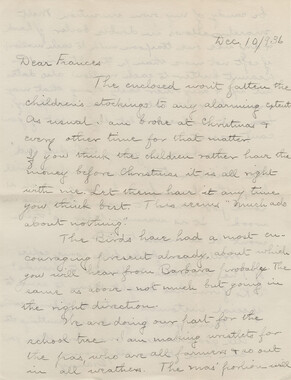 Dec 10/36
Dear Frances
The enclosed won't fatten the
children's stockings to any alarming extent
As usual I am broke at Christmas &
every other time for that matter
If you think the children rather have the
money before Christmas it is all right
with me. Let them have it any time
you think best. This seems "much ado
about nothing"
The Birds have had a most en-
couraging forecast already, about which
you will hear from Barbara probably the
same as above - not much but going in
the right direction.
We are doing our part for the
school tree I am making wristlets for
the pas, who are all farmers & so out
in all weathers. The mas' portion will